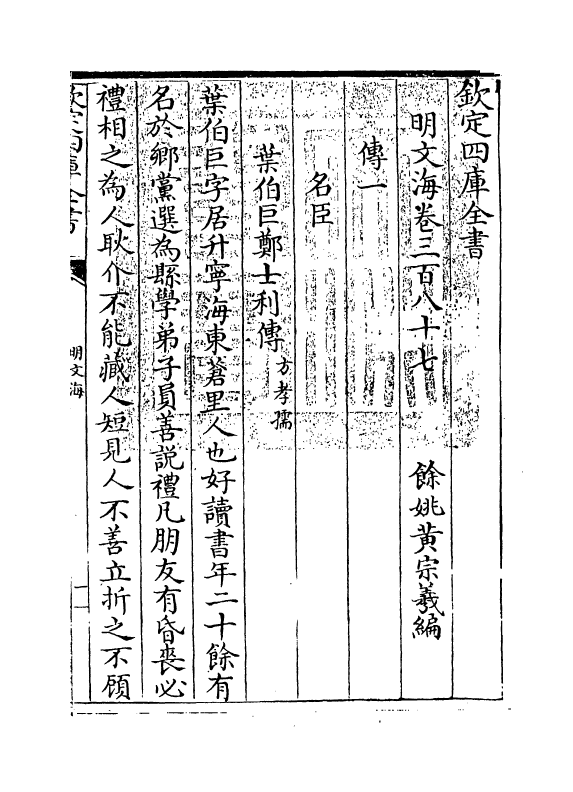 欽定四庫全書
明文海卷三百八十七
餘姚黄宗羲編
傳一
名臣
葉伯巨鄭士利傳方孝孺
葉伯巨字居升寧海東蒼里人也好讀書年二十餘有
名於鄉黨選為縣學弟子員善説禮凡朋友有昏喪必
禮相之為人耿介不能藏人短見人不善立折之不顧
欽定四庫全書
明文海
一